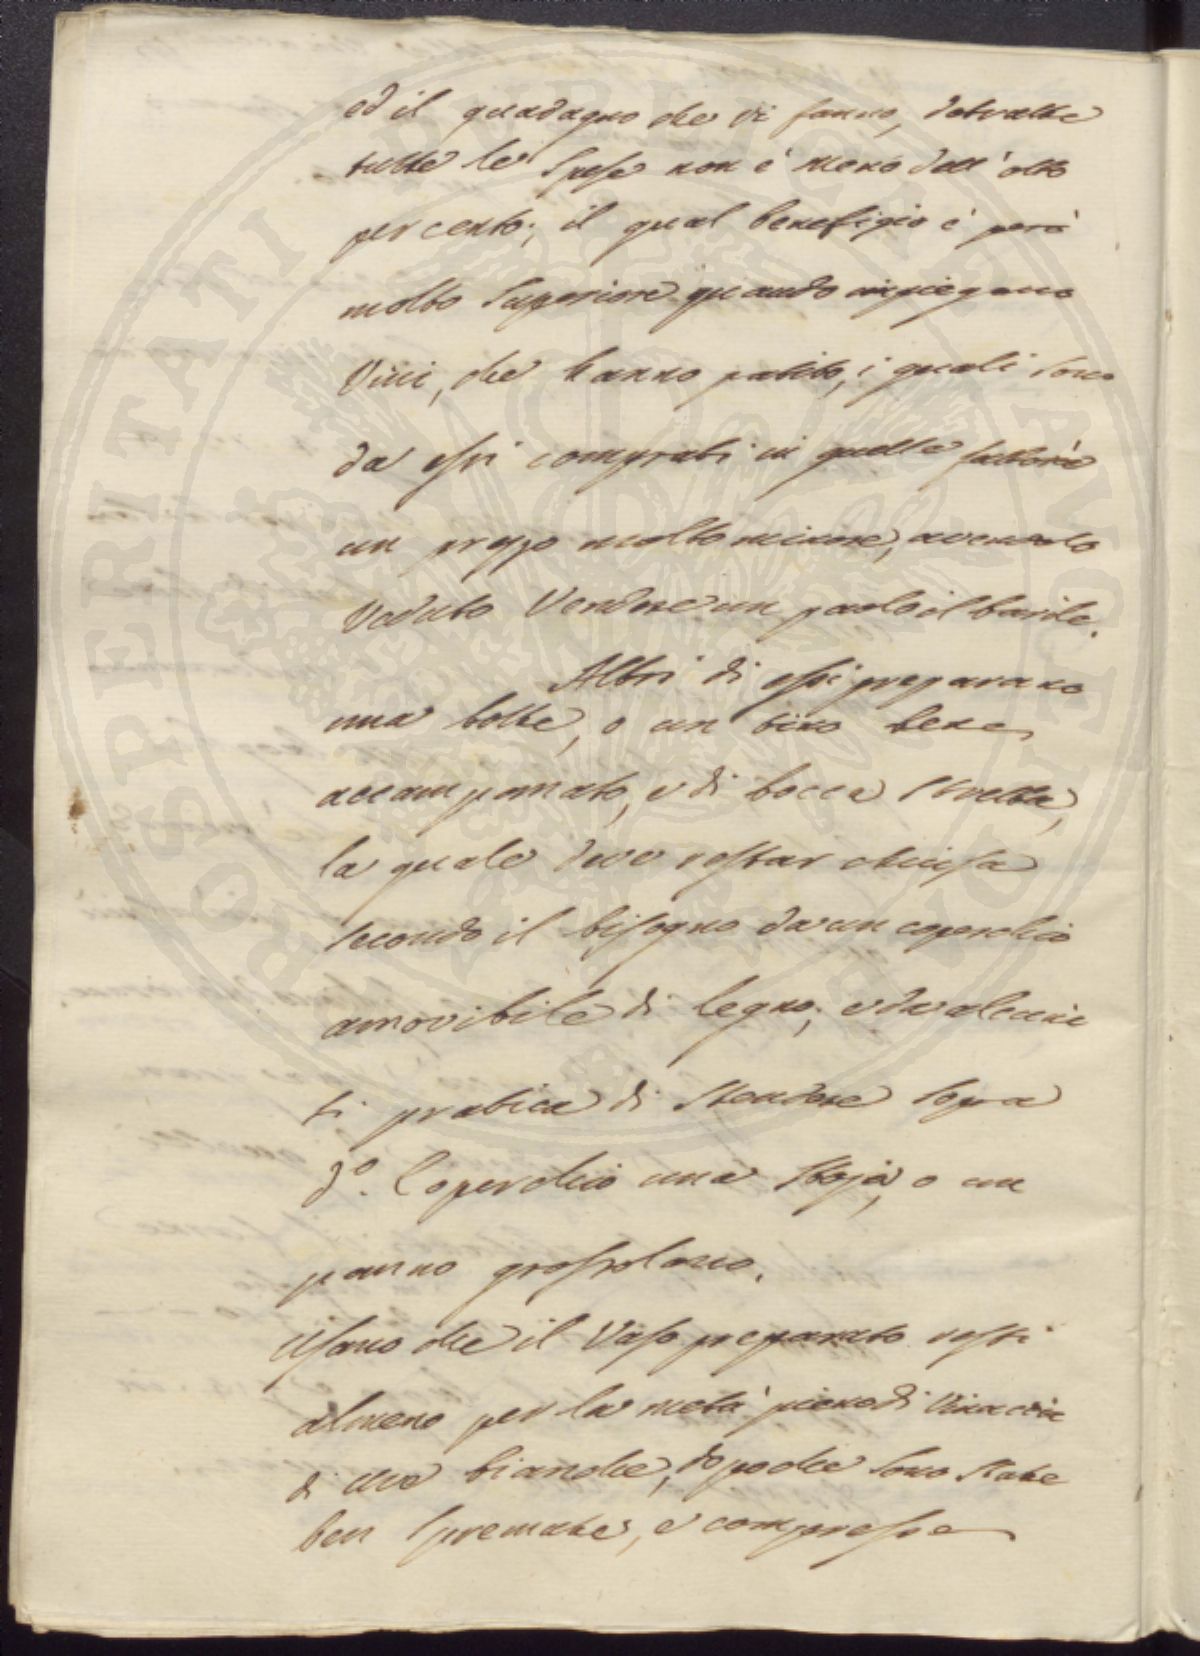 ed il guadagno che vi fanno, detratte
tutte le Spese non è meno dell'otto
per cento; il qual benefizio è però
molto Superiore quando impiegano
Vini, che hanno patito, i quali sono
da essi comprati in quelle fattorie
un prezzo molto minore, avendolo
Veduto Vendere un paolo il barile.
Altri di essi preparano
una botte, o un tino bene
accampanato, e di bocca stretta,
la quale deve restar chiusa
secondo il bisogno da un coperchio
amovibile di legno; e da alcuni
si pratica di Stendere sopra
d.º Coperchio una Stoja, o un
panno grossolano.
Usano che il Vaso preparato resti
almeno per la metà pieno di Vinaccia
di Uve bianche, dopo che sono State
ben Spremute, e compresse
PROSPERITATI PUBLICAE AUGENDAE